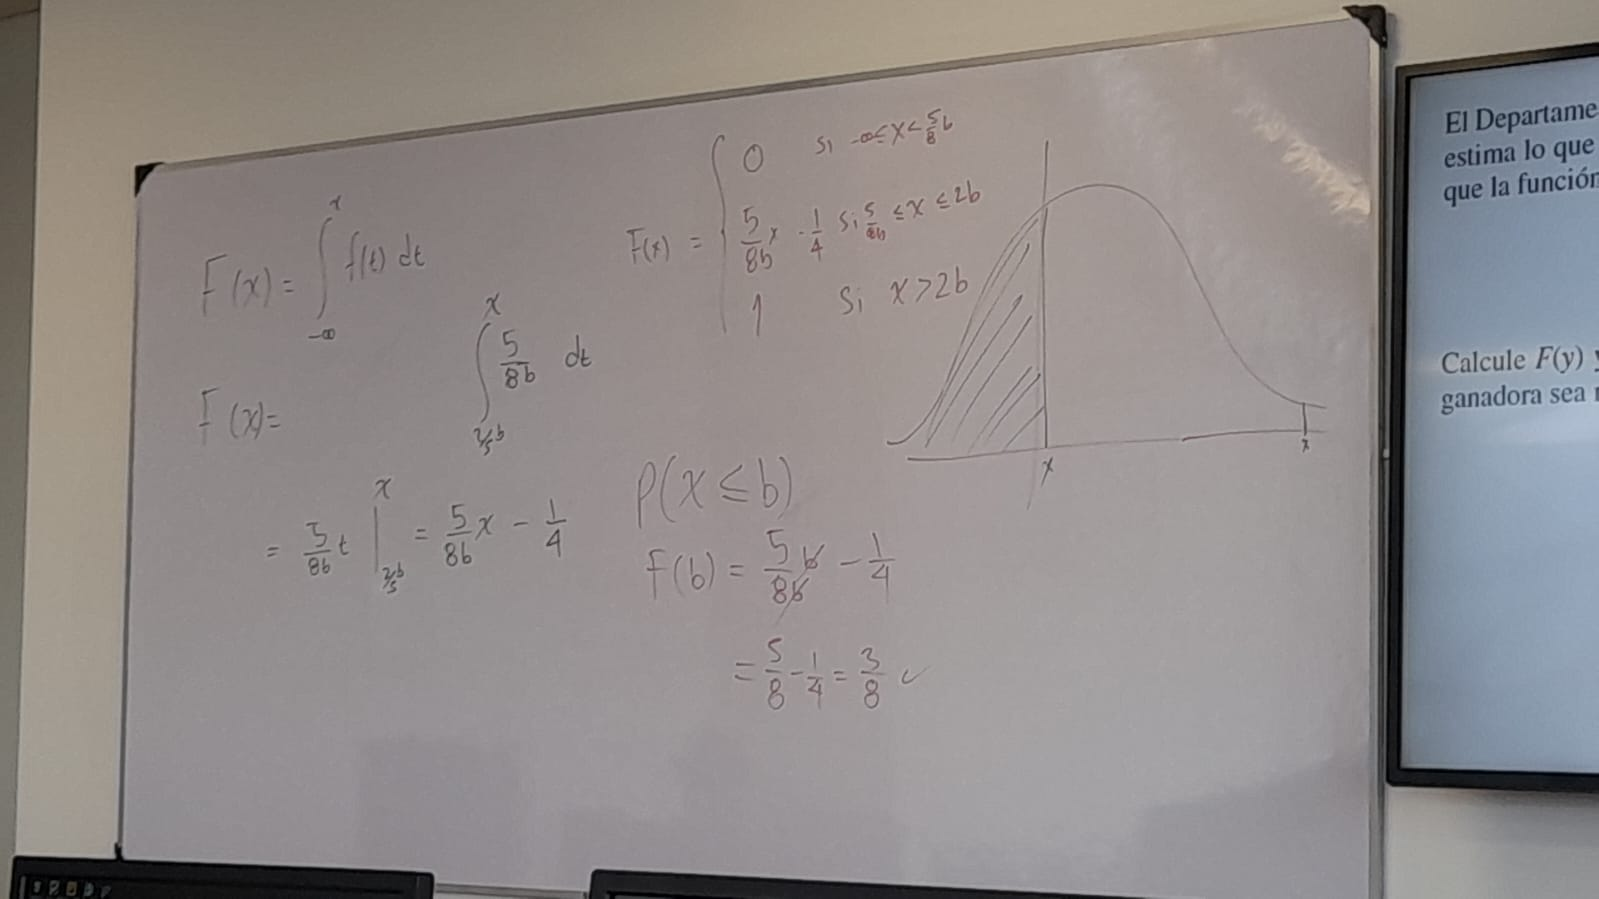 F(x) = ∫_{-∞}^{x} f(t) dt
F(x) =
∫_{2/5 b}^{x} 5/8b dt
= 5/8b t |_{2/5 b}^{x} = 5/8b x - 1/4
F(x) = {
0 si -∞ ≤ x < 5/8 b
5/8b x - 1/4 si 5/8b ≤ x ≤ 2b
1 si x > 2b
P(x ≤ b)
F(b) = 5b/8b - 1/4
= 5/8 - 1/4 = 3/8 ✓
x
x
El Departame
estima lo que
que la función
Calcule F(y) y
ganadora sea